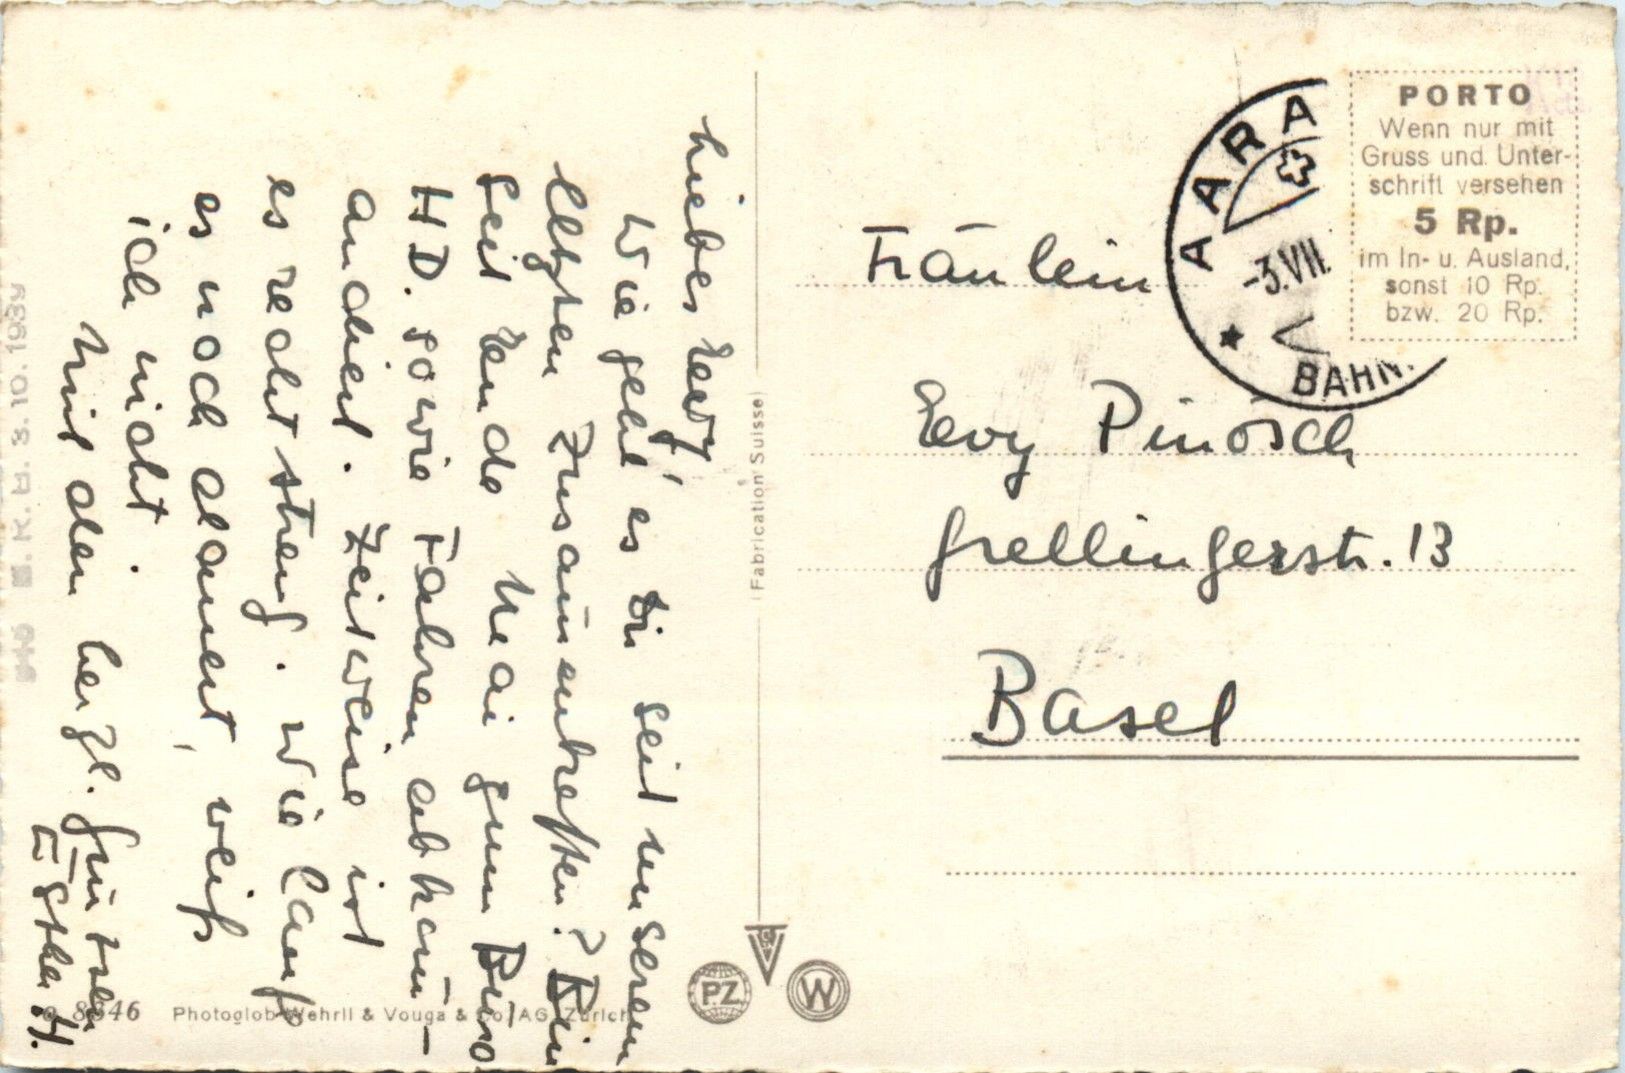 Liebes Revy,
Wie geht es Dir seit unserem
letzten Zusammentreffen? Bin
seit Ende Mai zum Büro
HD. sowie Fahren abkom-
andiert. Zeitweise ist
es recht streng. Wie lang
es noch dauert, weiß
ich nicht.
Mit den herzl. Grüssen
Esther H.
Fräulein
Revy Pinösch
Grellingerstr. 13
Basel
AARA
-3.VII.
BAHN.
PORTO
Wenn nur mit
Gruss und Unter-
schrift versehen
5 Rp.
im In- u. Ausland,
sonst 10 Rp.
bzw. 20 Rp.
Fabrication Suisse
PZ
W
8846 Photoglob-Wehrli & Vouga & Co. AG. Zürich
3. 10. 1939